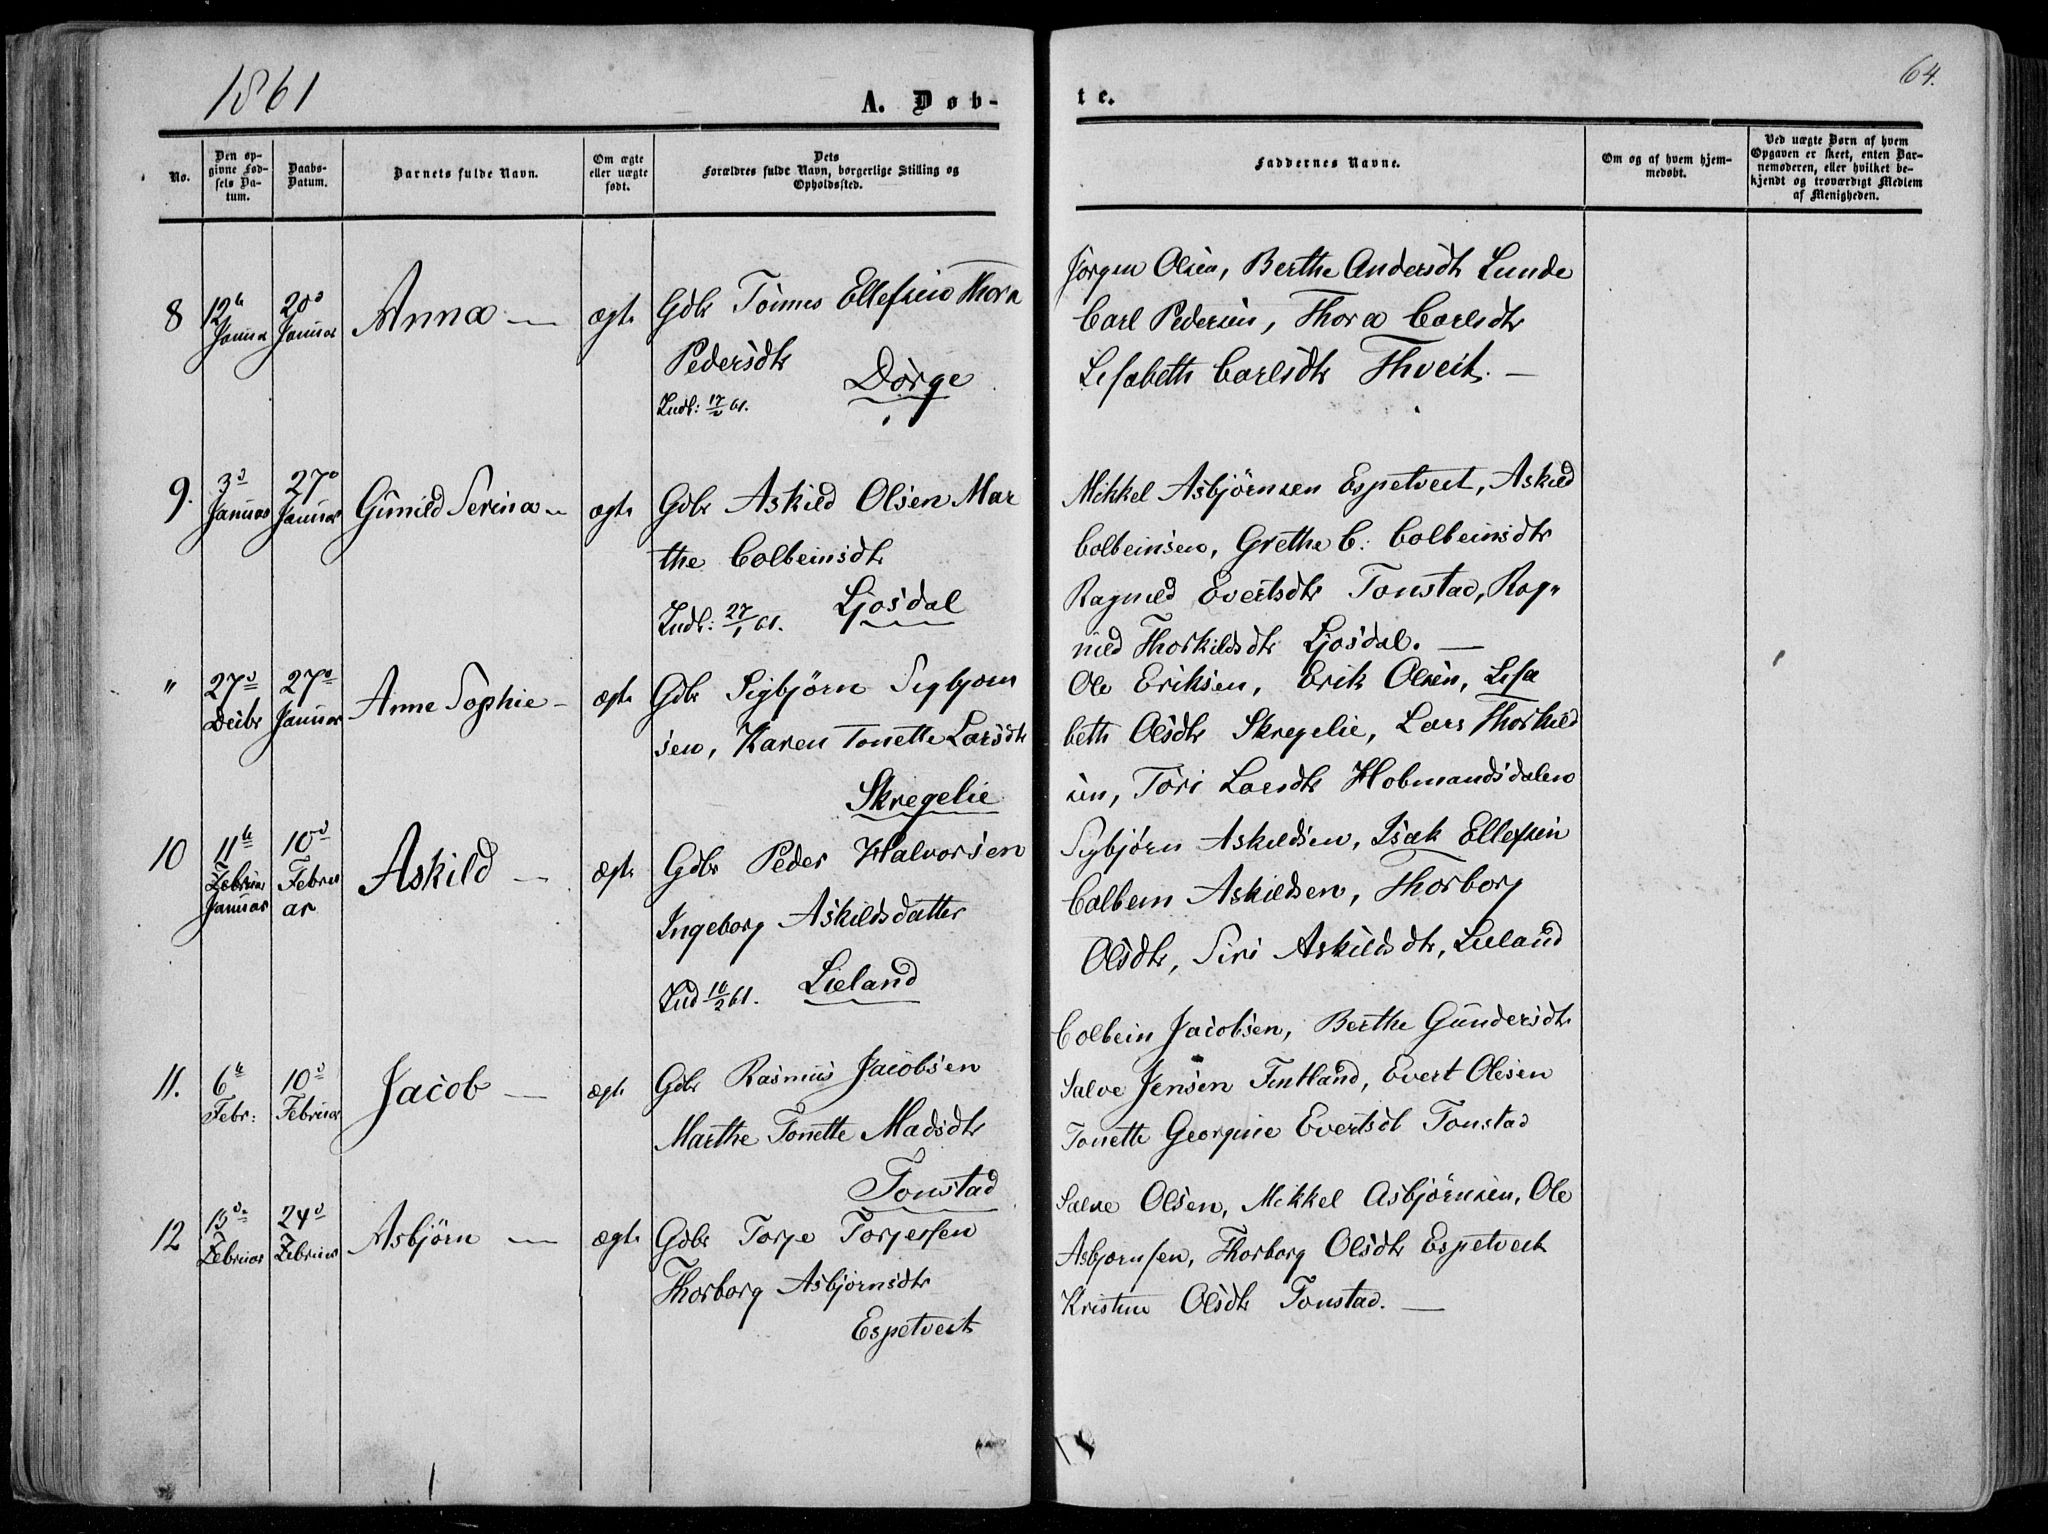 1861
A. Døb-
No.
Den op-
givne Fød-
sels Da-
tum.
Daabs-
Datum.
Barnets fulde Navn.
Om ægte
eller uægte
født.
Dets
Forældres fulde Navn, borgerlige Stilling og
Opholdssted.
8
12te
Januar
20de
Januar
Anna —
ægte
Gdbr Tönnes Ellefsen Thora
Pedersdtr
Indl: 17/2 61. Dörge
9.
3de
Januar
27de
Januar
Gunild Serina —
ægte
Gdbr Askild Olsen Mar
the Colbeinsdtr
Indl: 27/1 61. Ljosdal
"
27de
Decbr
27de
Januar
Anne Sophie —
ægte
Gdbr Sigbjörn Sigbjørn
sen, Karen Tonette Larsdtr
Skregelie
10
11te
Februar
Januar
10de
Febru
ar
Askild —
ægte
Gdbr Peder Halvorsen
Ingeborg Askildsdatter
Ind 10/2 61. Lieland
11.
6te
Febr:
10de
Februar
Jacob —
ægte
Gdbr Rasmus Jacobsen
Marthe Tonette Madsdtr
Tonstad
12
Februar
24de
Februar
Asbjörn —
ægte
Gdbr Torje Torjessen
Thorborg Asbjørnsdtr
Espetveit
64.
te.
Faddernes Navne.
Om og af hvem hjem-
medøbt.
Ved uægte Børn af hvem
Opgaven er skeet, enten Bar-
nemoderen, eller hvilket be-
kjendt og troværdigt Medlem
af Menigheden.
Jörgen Olsen, Berthe Andersdtr Lunde
Carl Pedersen, Thora Carlsdtr
Lisabeth Carlsdtr Thveit. —
Mikkel Asbjørnsen Espetveit, Askild
Colbeinsen, Grethe C: Colbeinsdtr
Ragnild Evertsdtr Tonstad, Rag"
nild Thorkildsdtr Ljosdal. —
Ole Eriksen, Erik Olsen, Lisa
beth Olsdtr Skregelie, Lars Thorkild
sen, Töri Larsdtr Hobmandsdalen
Sigbjørn Askildsen, Isak Ellefsen
Colbein Askildsen, Thorborg
Olsdtr, Siri Askildsdtr, Lieland
Colbein Jacobsen, Berthe Gundersdtr
Salve Jensen Fintland, Evert Olesen
Tonette Georgine Evertsdt Tonstad
Salve Olsen, Mikkel Asbjørnsen, Ole
Asbjørnsen, Thorborg Olsdtr Espetveit
Kristine Olsdtr Tonstad. —